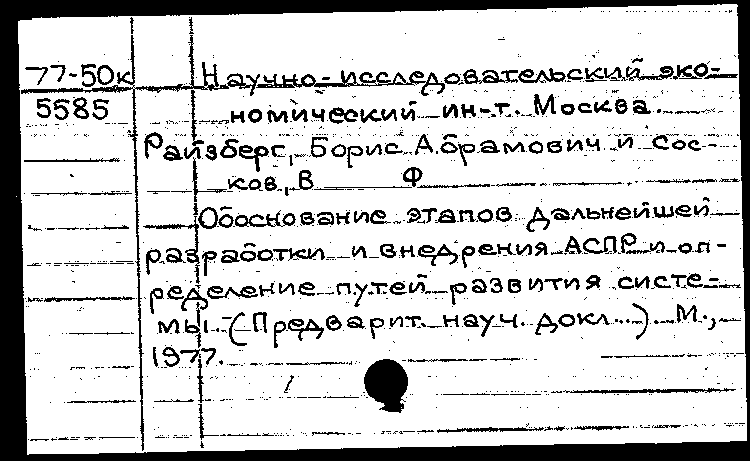 77-50к Научно-исследовательский эко-
5585 номический ин-т. Москва.
Райзберг, Борис Абрамович и Сос-
ков, В Ф
Обоснование этапов дальнейшей
разработки и внедрения АСПР и оп-
ределение путей развития систе-
мы. (Предварит. науч. докл...). М.,
1977.